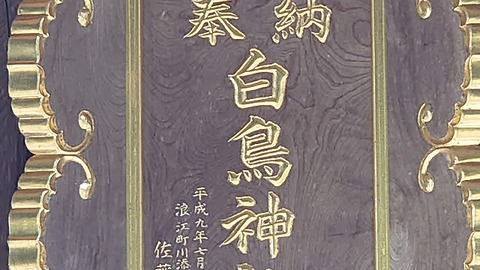 奉納
白鳥神
平成九年七月
浪江町川添
佐